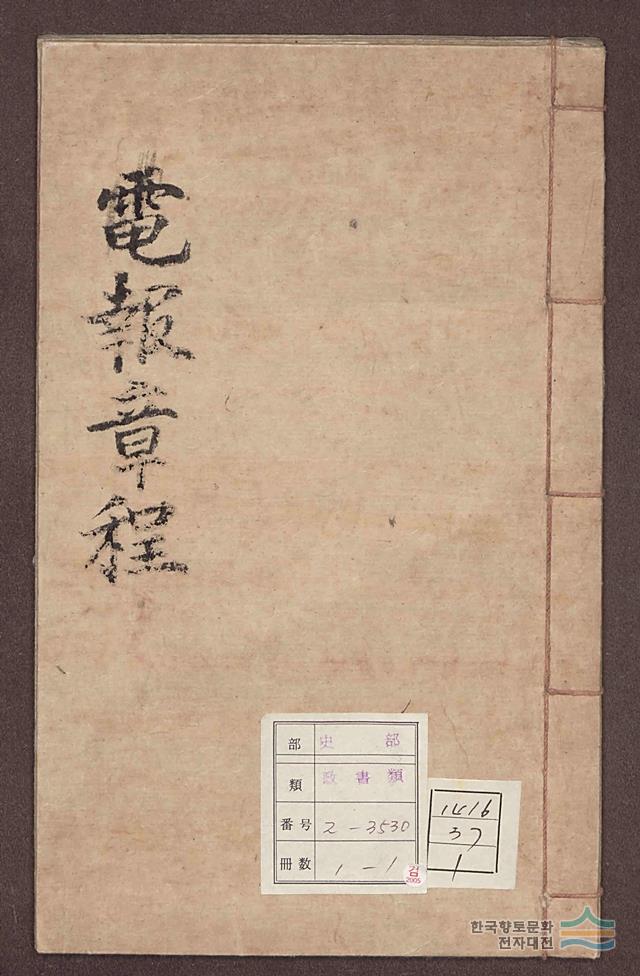 電報章程
部 史部
類 政書類
番号 2-3530
冊数 1-1
검
2005
1416
37
1
한국향토문화
전자대전